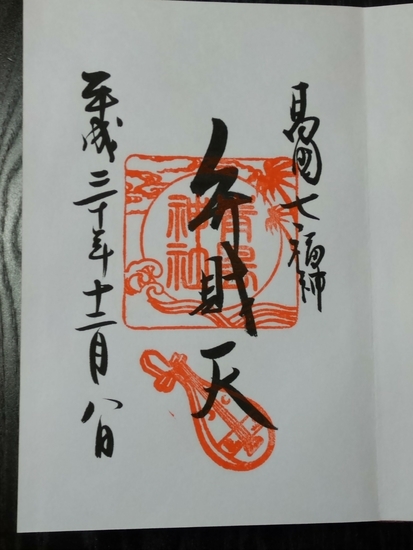 高岡七福神
弁財天
平成三十年十二月八日
神社